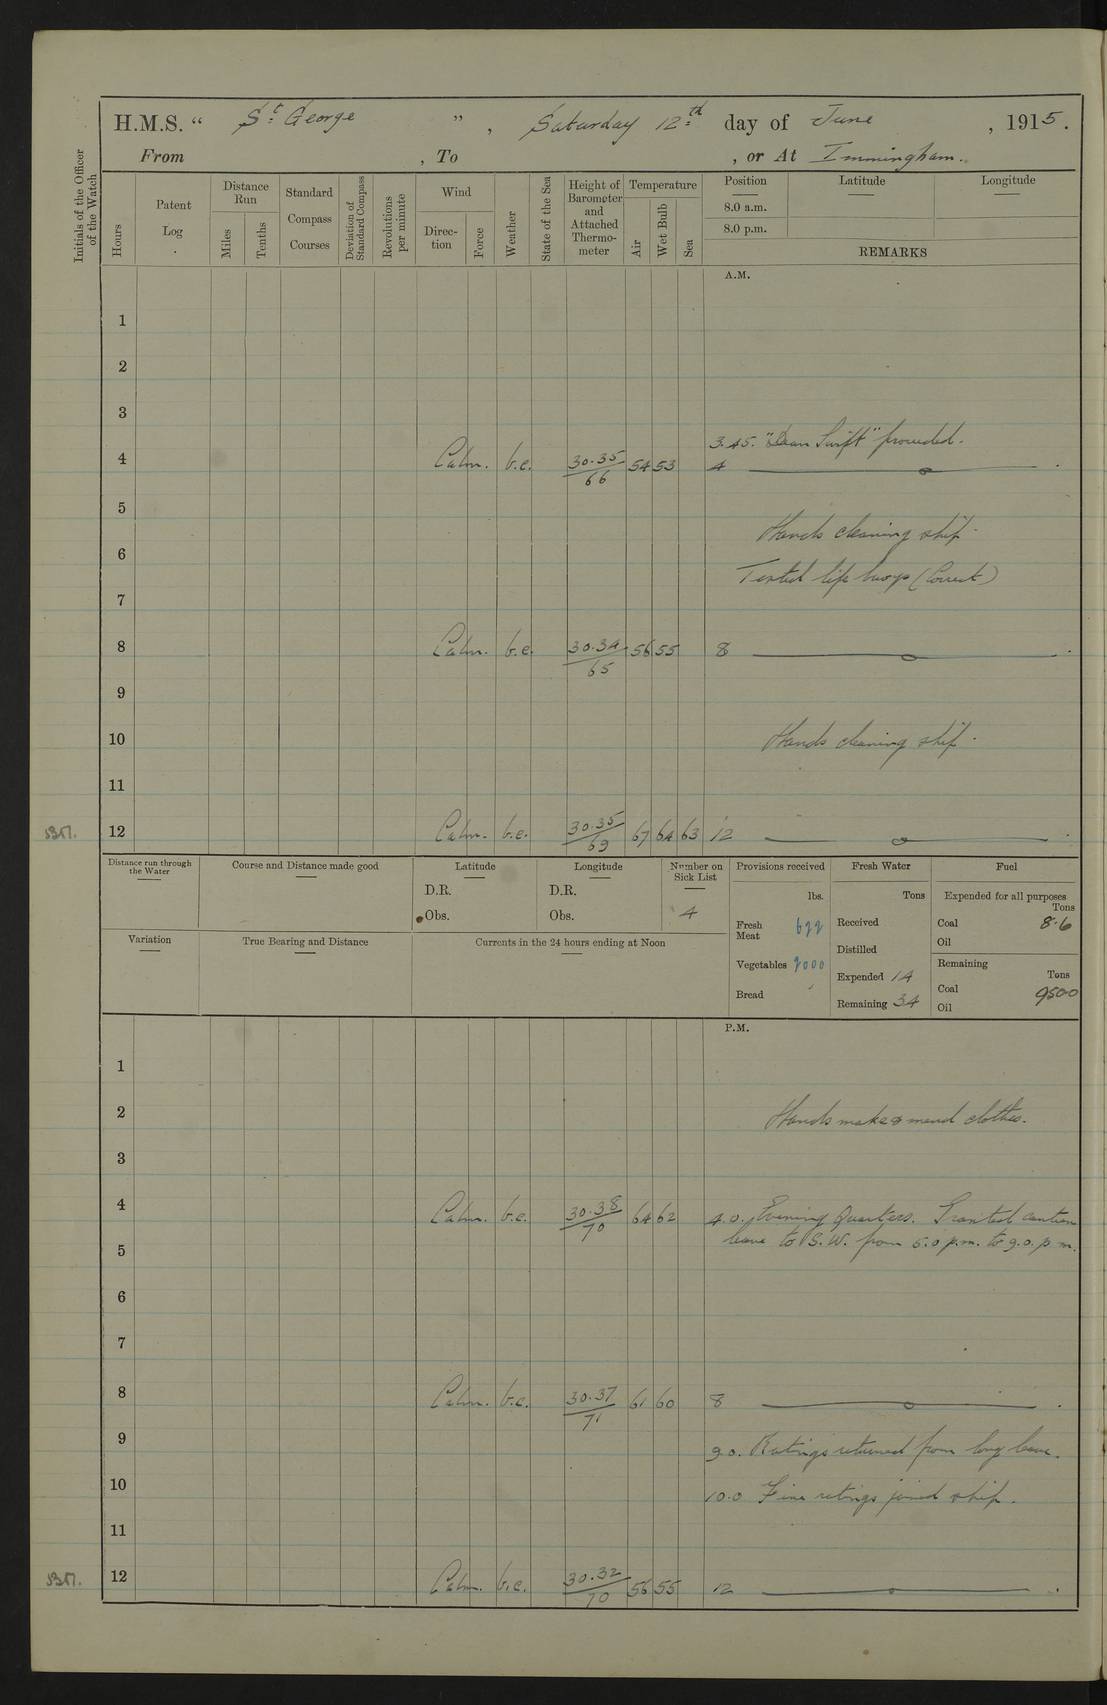 H.M.S. “ St George ” , Saturday 12th day of June , 1915.
From , To , or At Immingham.
Initials of the Officer of the Watch
Hours
Patent Log
Distance Run
Miles
Tenths
Standard Compass Courses
Deviation of Standard Compass
Revolutions per minute
Wind
Direction
Force
Weather
State of the Sea
Height of Barometer and Attached Thermometer
Temperature
Air
Wet Bulb
Sea
Position Latitude Longitude
8.0 a.m.
8.0 p.m.
REMARKS
A.M.
1
2
3
3.45. "Dean Swift" proceeded.
4 Calm. b.c. 30.35/66 54 53 4
5
Hands cleaning ship.
6
Tested life buoys (Correct)
7
8 Calm. b.c. 30.34/65 56 55 8
9
10 Hands cleaning ship.
11
12 Calm. b.c. 30.35/69 67 64 63 12
Distance run through the Water
Course and Distance made good
Latitude
D.R.
Obs.
Longitude
D.R.
Obs.
Number on Sick List
4
Provisions received
lbs.
Fresh Meat 622
Vegetables 2000
Bread
Fresh Water
Tons
Received
Distilled
Expended 14
Remaining 34
Fuel
Expended for all purposes
Tons
Coal 8.6
Oil
Remaining
Tons
Coal 950.0
Oil
Variation
True Bearing and Distance
Currents in the 24 hours ending at Noon
P.M.
1
2 Hands make & mend clothes.
3
4 Calm. b.c. 30.38/70 64 62 4.0. Evening Quarters. Granted canteen
leave to S.W. from 5.0 p.m. to 9.0. p.m.
5
6
7
8 Calm. b.c. 30.37/71 61 60 8
9 9.0. Ratings returned from long leave.
10 10.0 Five ratings joined ship.
11
12 Calm. b.c. 30.32/70 56 55 12